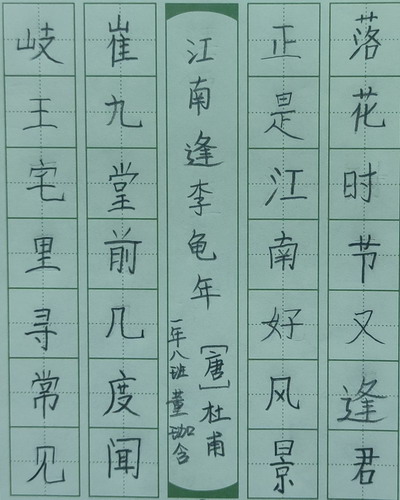 岐王宅里寻常见
崔九堂前几度闻
江南逢李龟年
[唐]杜甫
一年八班 董珈含
正是江南好风景
落花时节又逢君